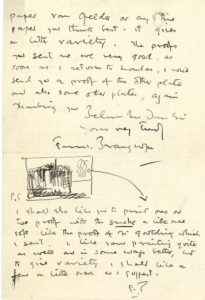 paper van Gelder or any fine
paper you think best. it gives
a little variety. The proofs
you sent me are very good. as
soon as I return to London, I will
send you a proof of the other plate
and also some other plates, again
thanking you
Believe me Dear Sir
yours very truly
Frank Brangwyn
P.S
I shall also like you to print one or
two proofs with the smoke a little more
soft like the proof of which
I sent. I like your printing quite
as well and in some ways better, but
to give variety I shall like a
few a little more as I suggest.
F.B